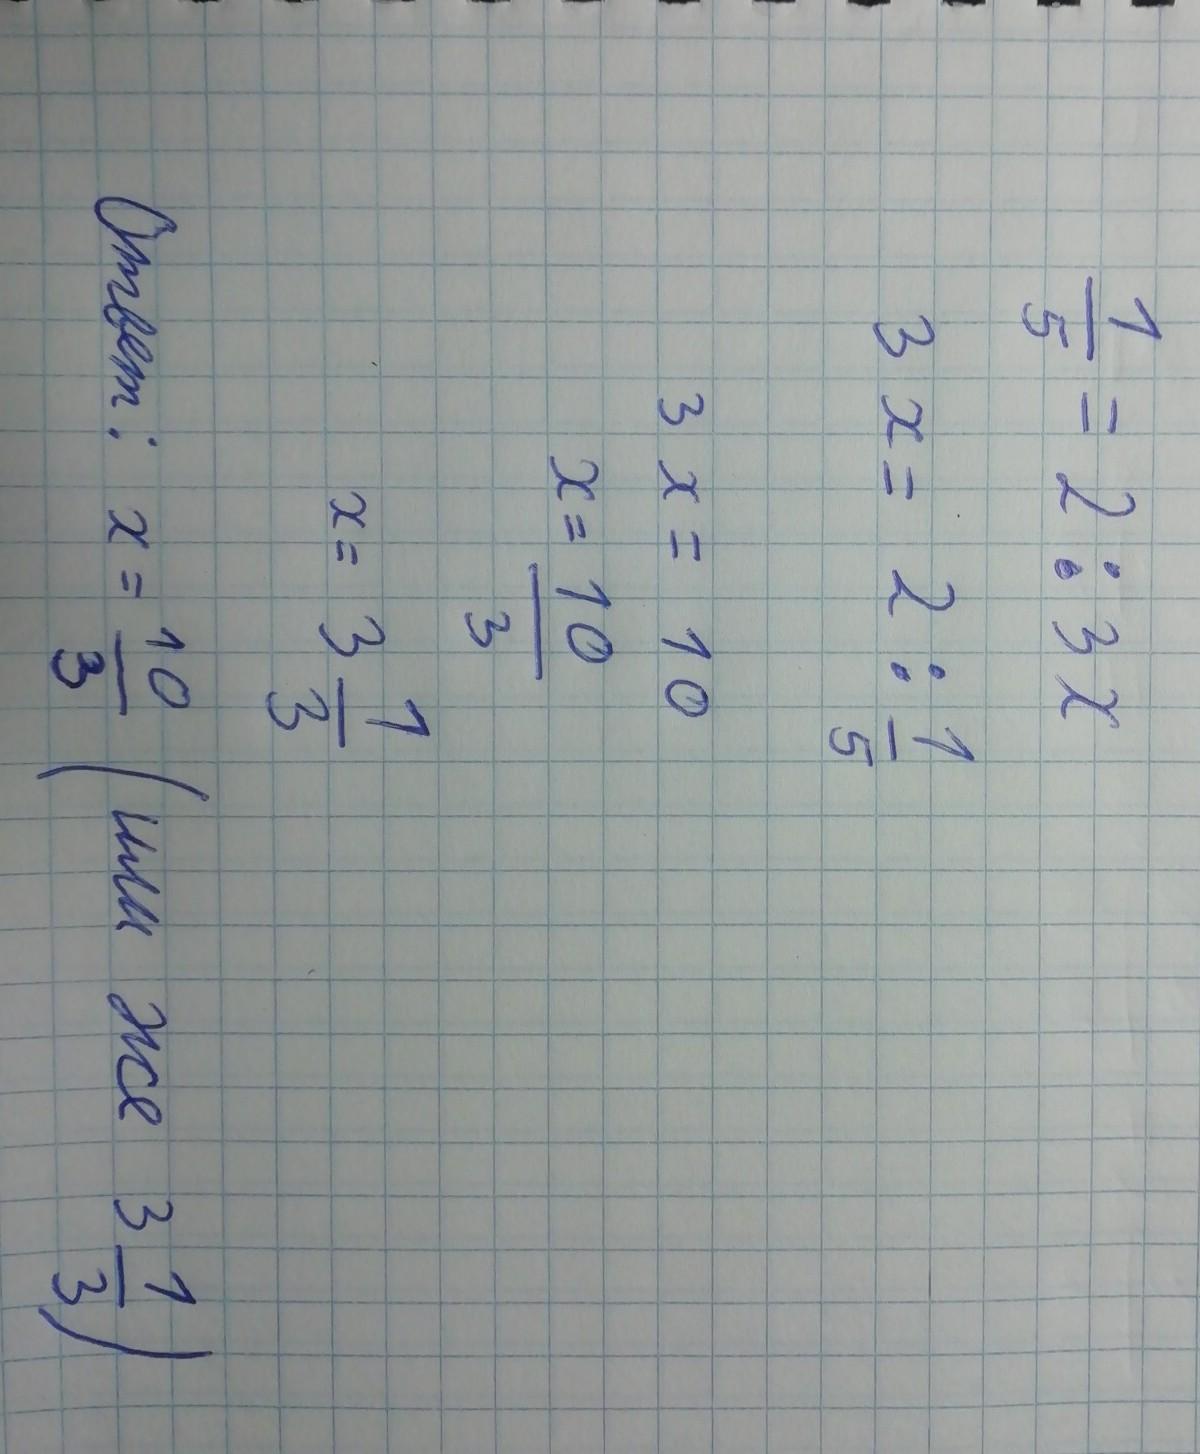 1/5 = 2 : 3x
3x = 2 : 1/5
3x = 10
x = 10/3
x = 3 1/3
Ответ: x = 10/3 (или же 3 1/3)